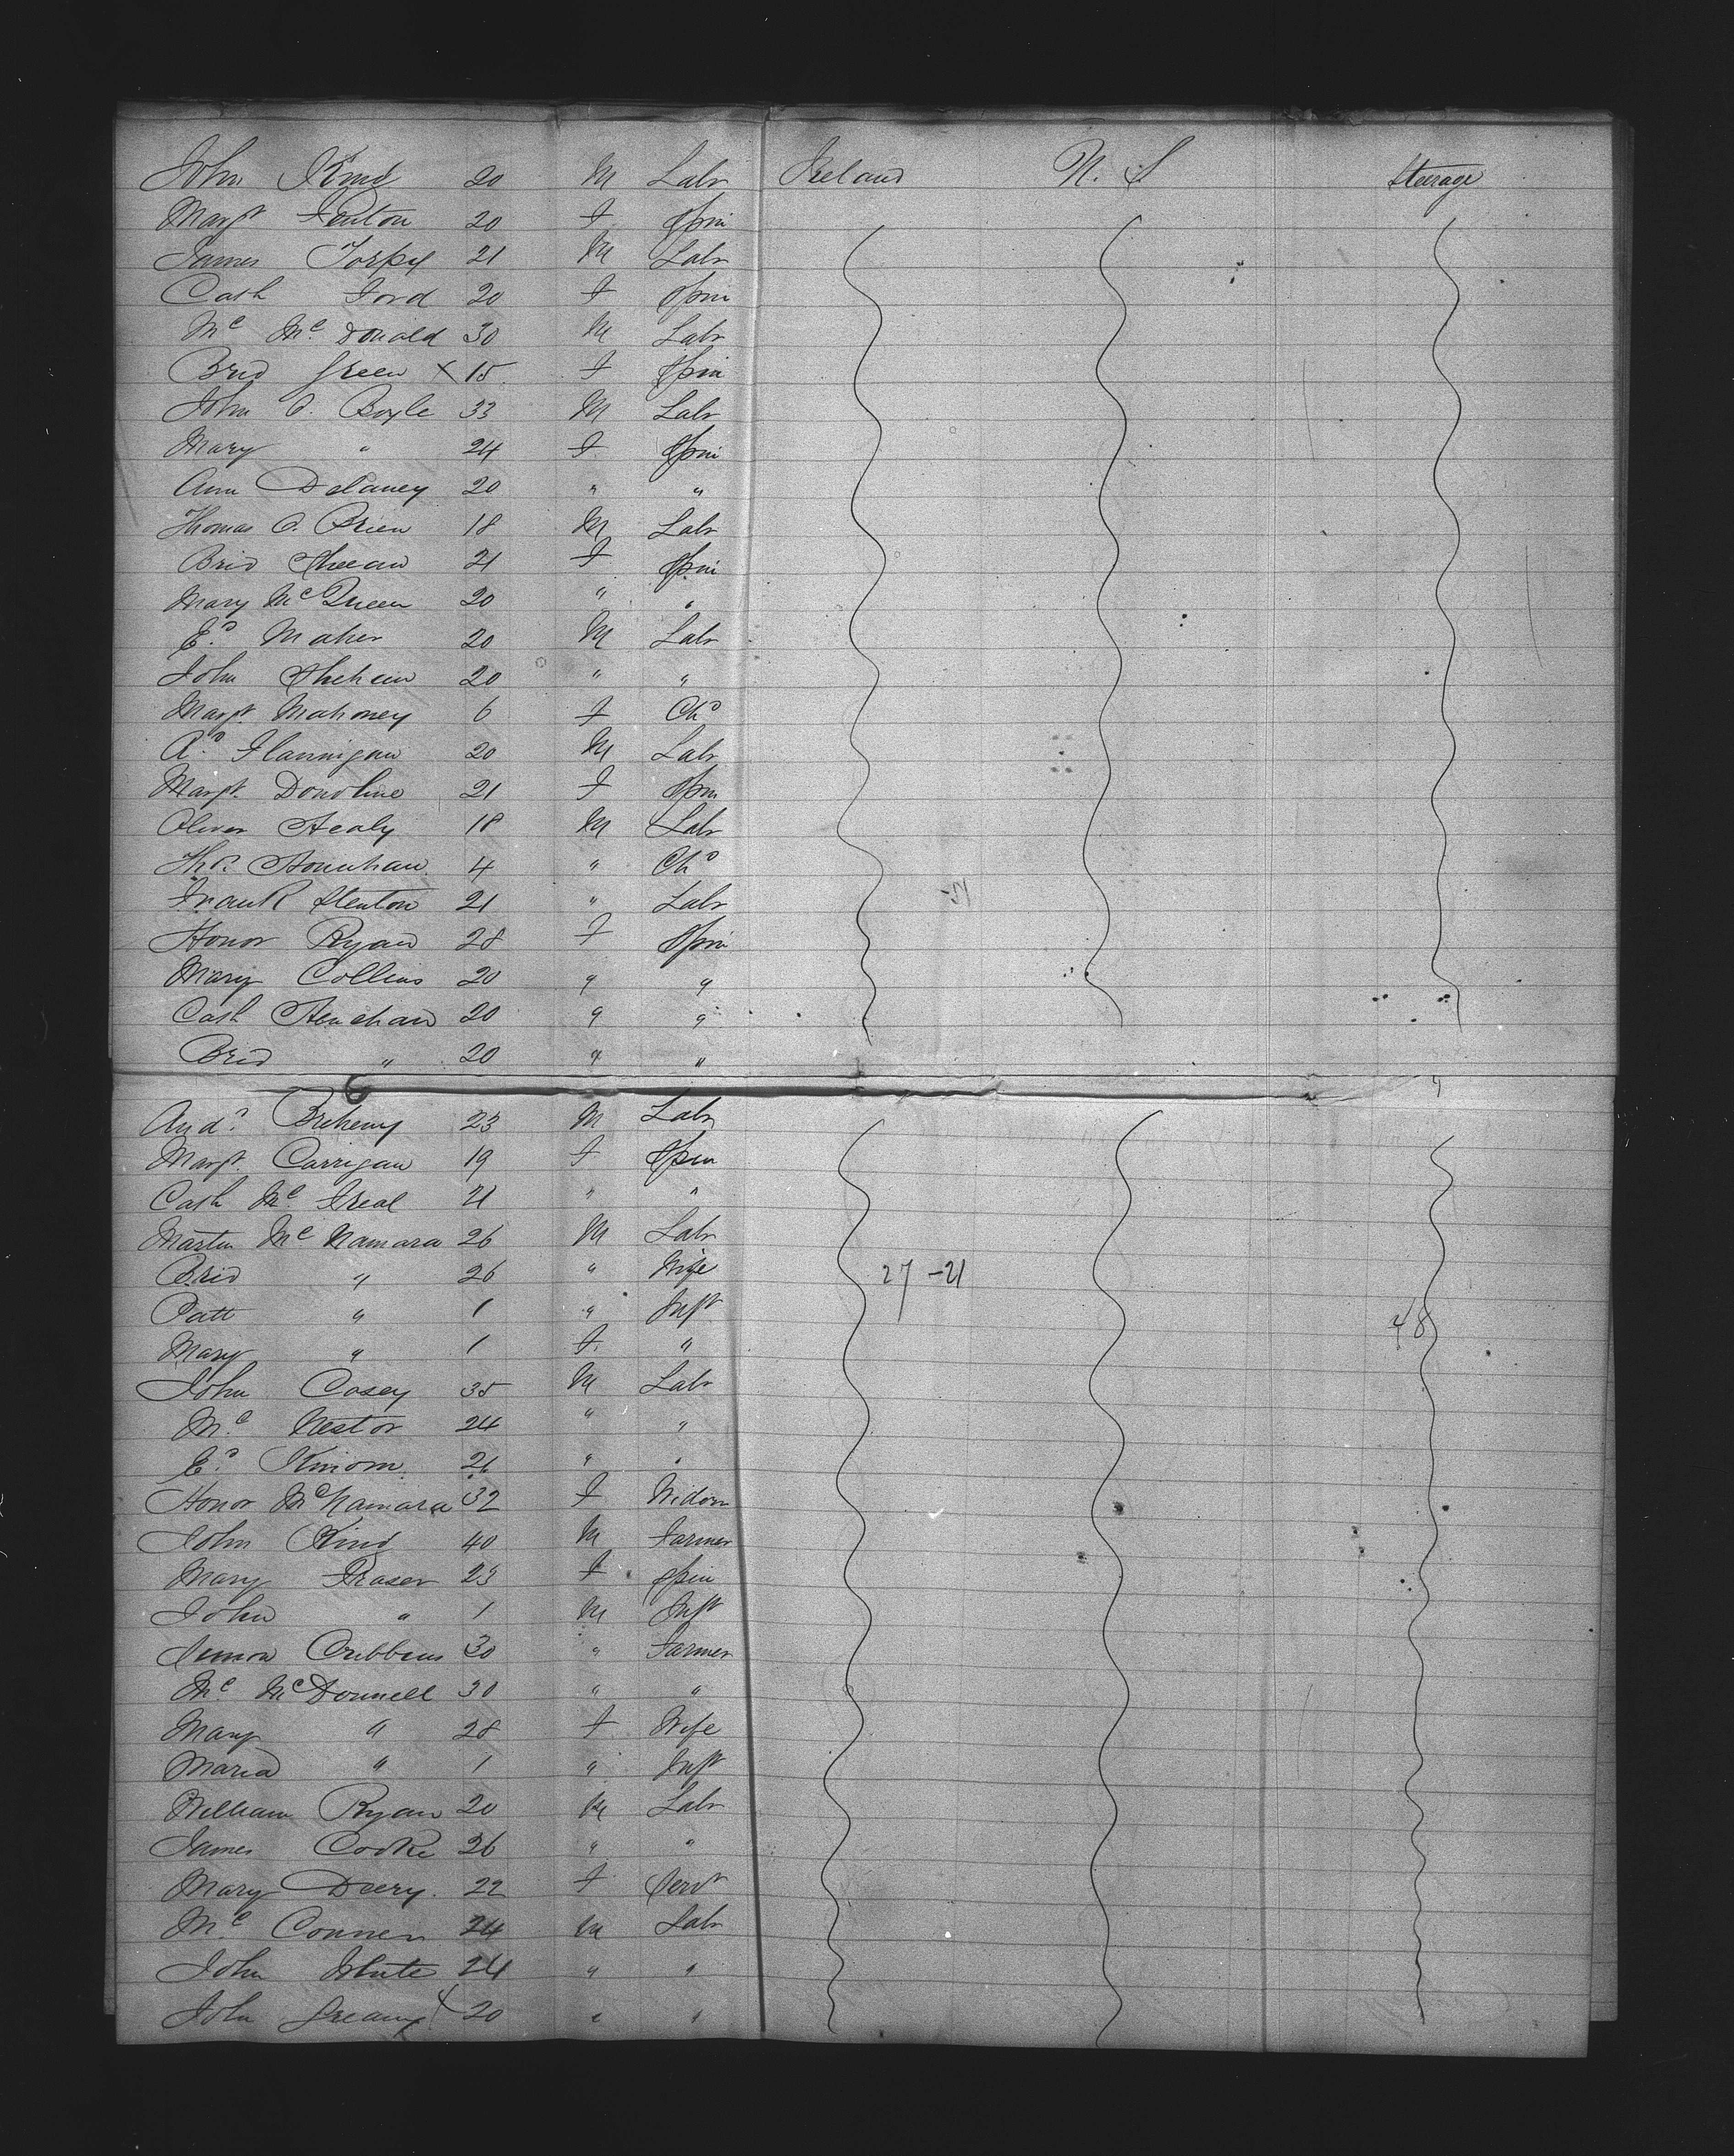 John King 20 M Labr Ireland U. S. Steerage
Margt Fenton 20 F Spin
James Torpy 21 M Labr
Cath Ford 20 F Spin
Ml McDonald 30 M Labr
Brid Green X 15 F Spin
John O. Boyle 33 M Labr
Mary " 24 F Spin
Ann Delaney 20 " "
Thomas O. Brien 18 M Labr
Brid Sheean 21 F Spin
Mary McQueen 20 " "
Ed Maher 20 M Labr
John Shehan 20 " "
Margt Mahoney 6 F Chd
Flannigan 20 M Labr
Margt Donohue 21 F Spin
Oliver Healy 18 M Labr
Thos. Hounihan 4 " Chd
Frank Stenton 21 " Labr
Honor Ryan 28 F Spin
Mary Collins 20 " "
Cath Henehan 20 " "
Brid " 20 " "
6
Andw Breheny 23 M Labr
Margt Carrigan 19 F Spin
Cath Mc 21 " "
Martin McNamara 26 M Labr
Brid " 26 " Wife 27-21
Patt " 1 " Inft
Mary " 1 F " 48
John Casey 35 M Labr
Ml Nestor 24 " "
Ed 21 " "
Honor McNamara 32 F Widow
John King 40 M Farmer
Mary Fraser 23 F Spin
John " 1 M Inft
Simon Cribbens 30 " Farmer
Ml McDonnell 30 " "
Mary " 28 F Wife
Maria " 1 " Inft
William Ryan 20 M Labr
James Cooke 26 " "
Mary Deery 22 F Servt
Ml Conner 24 M Labr
John White 24 " "
John X 20 " "